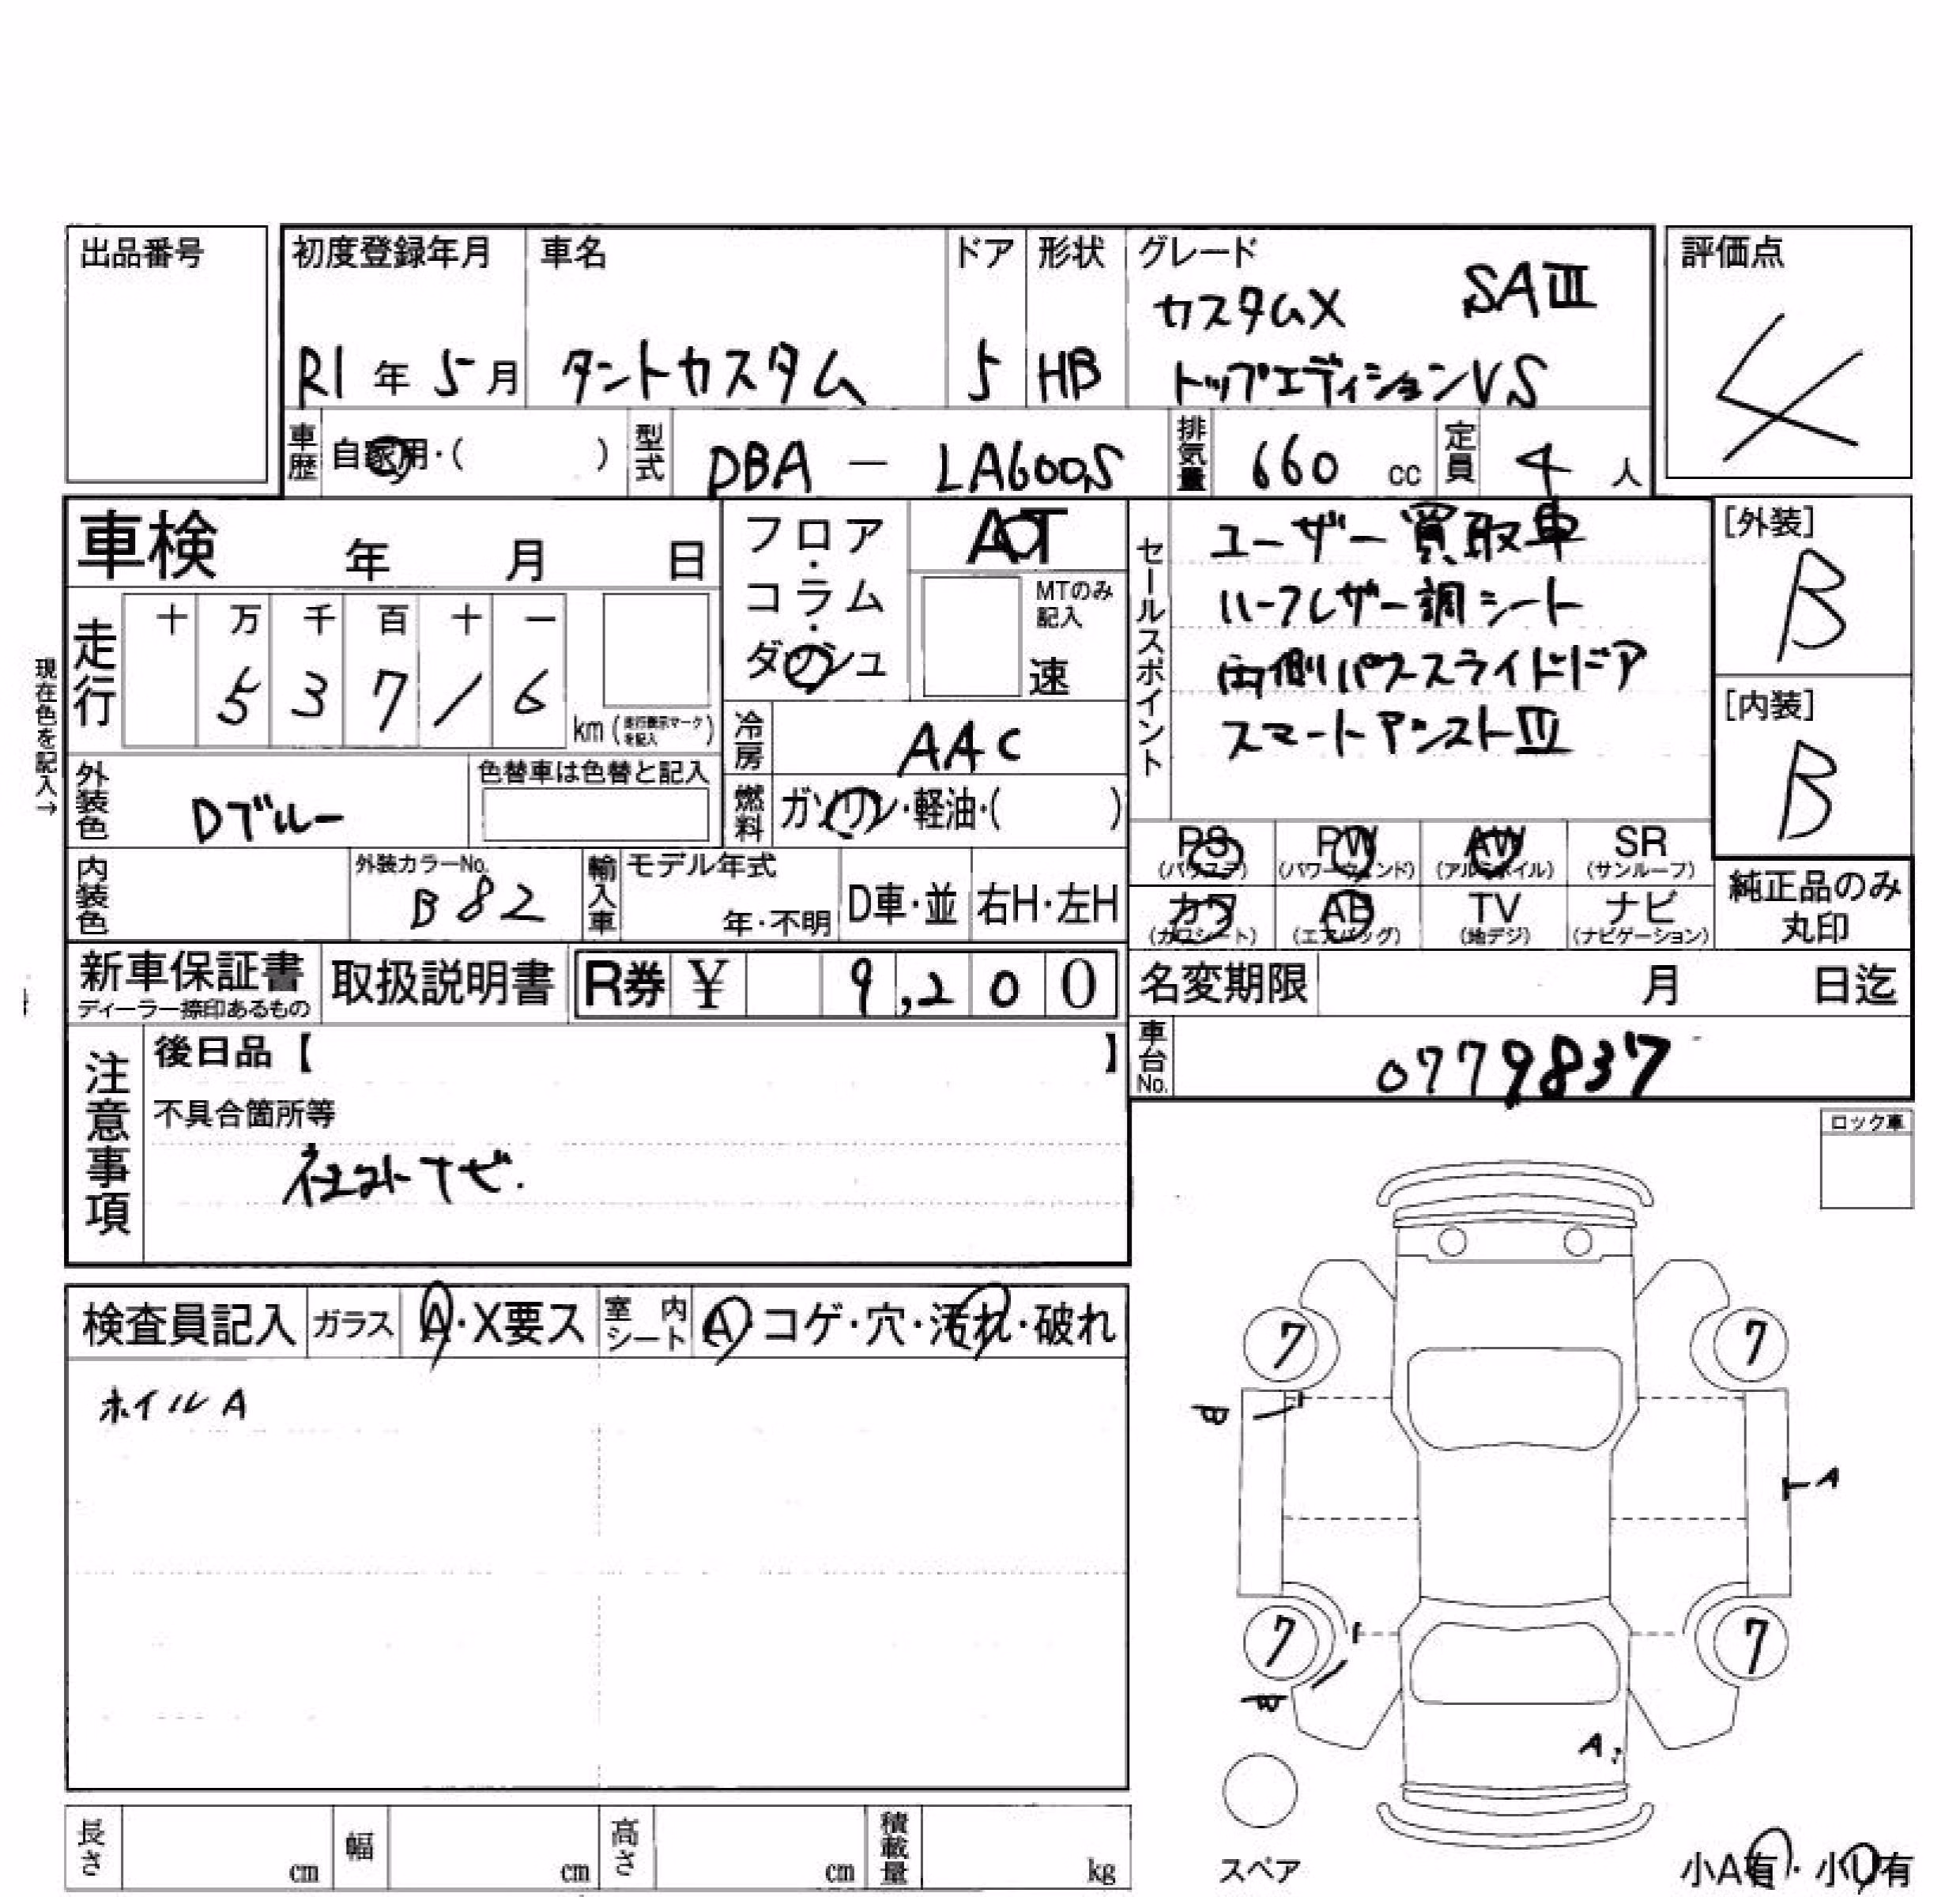 出品番号
初度登録年月
R1年5月
車名
タントカスタム
ドア
5
形状
HB
グレード
カスタムX SAIII
トップエディションVS
評価点
4
車歴 自家用・( )
型式 DBA - LA600S
排気量 660 cc
定員 4 人
車検 年 月 日
現在色を記入→
走行
十 万 千 百 十 一
5 3 7 1 6
km (走行表示マークを記入)
フロア・コラム・ダッシュ
AT
MTのみ記入
速
冷房 AAC
燃料 ガソリン・軽油・( )
外装色 Dブルー
色替車は色替と記入
内装色
外装カラーNo.
B82
輸入車
モデル年式
年・不明
D車・並
右H・左H
セールスポイント
ユーザー買取車
ハーフレザー調シート
両側パワースライドドア
スマートアシストIII
[外装]
B
[内装]
B
PS (パワステ)
PW (パワーウィンド)
AW (アルミホイル)
SR (サンルーフ)
カワ (カワシート)
AB (エアバッグ)
TV (地デジ)
ナビ (ナビゲーション)
純正品のみ丸印
新車保証書
ディーラー捺印あるもの
取扱説明書
R券 ¥ 9,200
名変期限 月 日迄
車台No. 0779837
注意事項
後日品【 】
不具合箇所等
社外ナビ.
ロック車
検査員記入
ガラス A・X要ス
室内シート A・コゲ・穴・汚れ・破れ
ホイルA
7
7
B
A
7
7
A
スペア
小A有・小U有
長さ cm
幅 cm
高さ cm
積載量 kg